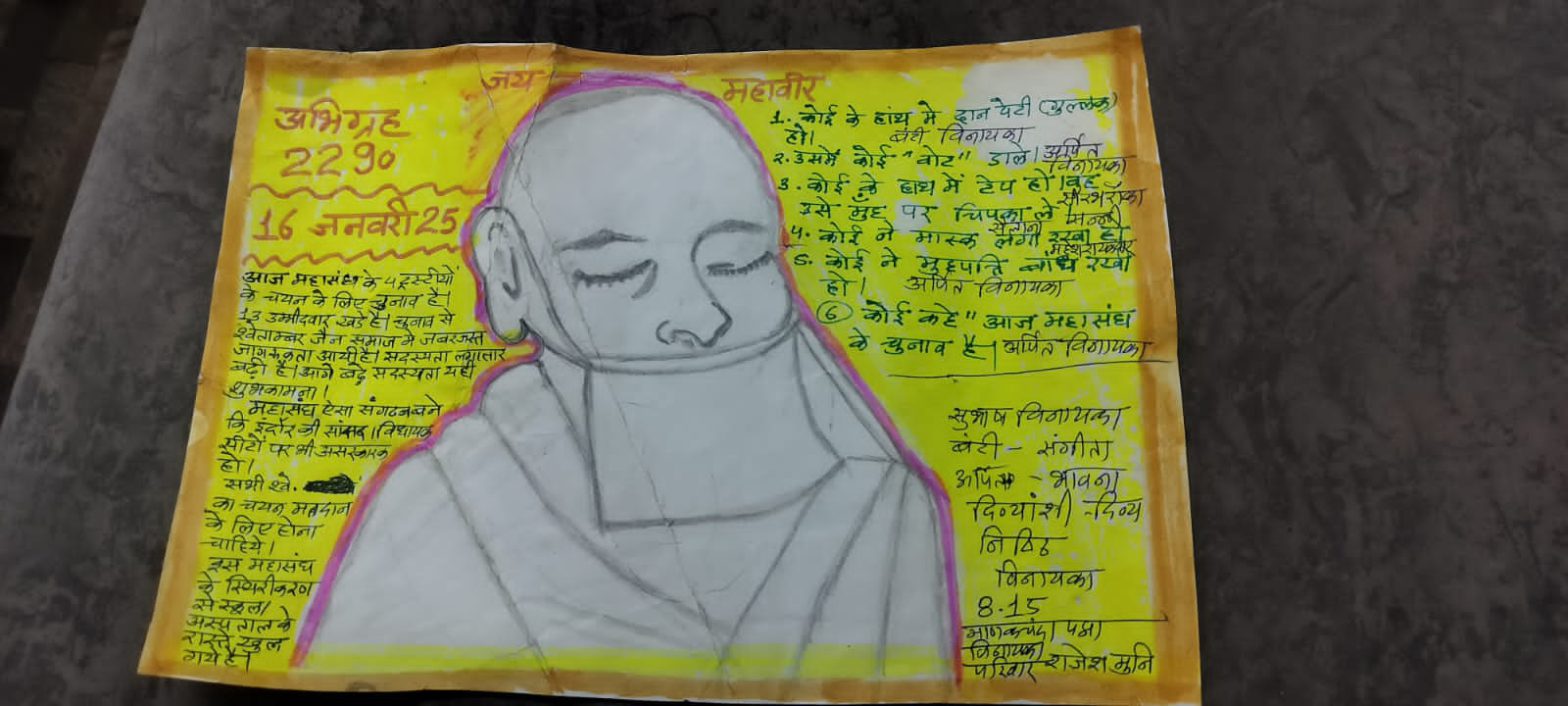 जय महावीर
अभिग्रह
2290
16 जनवरी 25
आज महासंघ के 4 ट्रस्टीयों
के चयन के लिए चुनाव है।
13 उम्मीदवार खडे है। चुनाव से
श्वेताम्बर जैन समाज मे जबरजस्त
जागरूकता आयी है। सदस्यता लगातार
बढ़ी है। आगे बढ़े सदस्यता यही
शुभकामना।
महासंघ ऐसा संगठन बने
कि इंदौर की सांसद। विधायक
सीटों पर भी असरकारक
हो।
सभी श्वे.
का चयन मतदान
के लिए होना
चाहिये।
इस महासंघ
के स्थिरीकरण
से स्कूल।
अस्पताल के
रास्ते खुल
गये है।
1. कोई के हांथ मे दान पेटी (गुल्लक)
हो। बंटी विनायका
2. उसमें कोई "वोट" डाले। अर्पित
विनायका
3. कोई के हाथ में टेप हो। वह
इसे मुँह पर चिपका ले।
4. कोई ने मास्क लगा रखा हो
5. कोई ने मुहपत्ति बांध रखी
हो। अर्पित विनायका
6 कोई कहे "आज महासंघ
के चुनाव है। अर्पित विनायका
सुभाष विनायका
बंटी - संगीता
अर्पित - भावना
दिव्यांशी - दिव्य
विनायका
8.15
विनायका
परिवार - राजेश मुनि